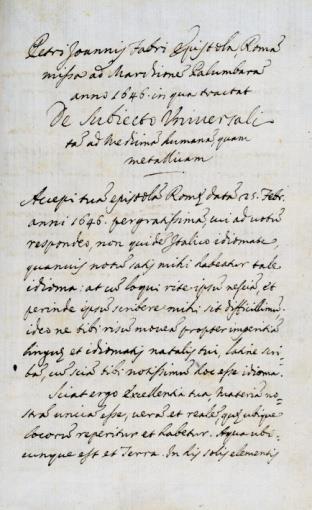 Petri Joannis Fabri Epistola, Romā
missa ad Marchionē Palumbarā
anno 1646. in qua tractat
De Subiecto Universali
tā ad Medicinā humanā, quam
metallicam
Accepi tuā epistolā Romę datā 25. Febr.
anni 1646. pergratissimā, cui ad votū
respondeo, non quidē Italico idiomate
quamvis notū satis mihi habeatur tale
idioma: at cū loqui rite ipsū nesciā, et
perinde ipsū scribere mihi sit difficillimū.
ideo ne tibi risū moveā propter imperitiā
linguę et idiomatis natalis tui, latine scri-
bā, cū sciā tibi notissimū hoc esse idioma.
Sciat ergo Excellentia tua, Materiā no-
strā unicā esse, verā et realē quę ubique
locorū reperitur et habetur. Aqua ubi-
cunque est et Terra. In his solis elementis